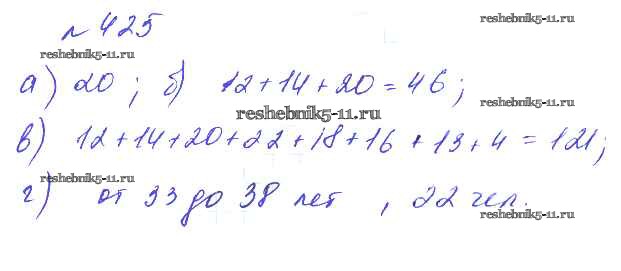 № 425
reshebnik5-11.ru reshebnik5-11.ru
а) 20 ; б) 12+14+20 = 46 ;
reshebnik5-11.ru reshebnik5-11.ru
в) 12+14+20+22+18+16+13+4 = 121;
reshebnik5-11.ru
г) от 33 до 38 лет , 22 чел.
reshebnik5-11.ru